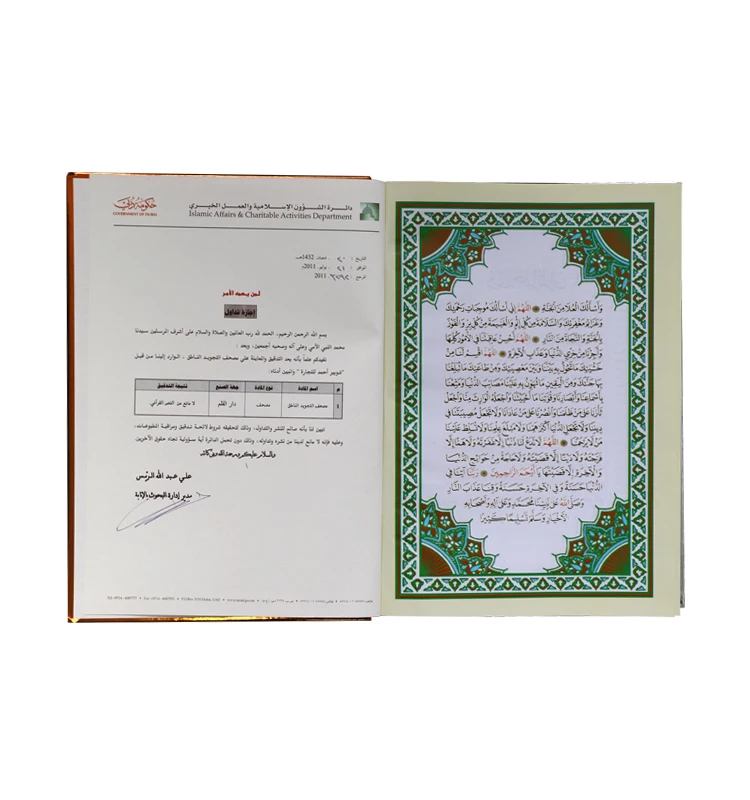 حكومة دبي
GOVERNMENT OF DUBAI
دائرة الشؤون الإسلامية والعمل الخيري
Islamic Affairs & Charitable Activities Department
التاريخ : ٢٠ شعبان 1432هـ
الموافق : ٢١ يوليو 2011م
2011
لمن يهمه الأمر
إجازة تداول
بسم الله الرحمن الرحيم، الحمد لله رب العالمين والصلاة والسلام على أشرف المرسلين سيدنا
محمد النبي الأمي وعلى آله وصحبه أجمعين، وبعد :
نفيدكم علماً بأنه بعد التدقيق والمعاينة على مصحف التجويد الناطق ، الوارد إلينا من قبل
أحمد للتجارة" والمبين أدناه:
م اسم المادة نوع المادة جهة الصنع نتيجة التدقيق
1 مصحف التجويد الناطق مصحف دار القلم لا مانع من النص القرآني.
تبين لنا بأنه صالح للنشر والتداول، وذلك لتحقيقه شروط لائحة تدقيق ومراقبة المطبوعات،
وعليه فإنه لا مانع لدينا من نشره وتداوله، وذلك دون تحمل الدائرة أية مسؤولية تجاه حقوق الآخرين.
والسلام عليكم ورحمة الله وبركاته
علي عبد الله الريس
مدير إدارة البحوث بالإنابة
وَأَسْأَلُكَ الْعُلَا مِنَ الْجَنَّةِ اللَّهُمَّ إِنِّي أَسْأَلُكَ مُوجِبَاتِ رَحْمَتِكَ
وَعَزَائِمَ مَغْفِرَتِكَ وَالسَّلَامَةَ مِنْ كُلِّ إِثْمٍ وَالْغَنِيمَةَ مِنْ كُلِّ بِرٍّ وَالْفَوْزَ
بِالْجَنَّةِ وَالنَّجَاةَ مِنَ النَّارِ اللَّهُمَّ أَحْسِنْ عَاقِبَتَنَا فِي الْأُمُورِ كُلِّهَا
وَأَجِرْنَا مِنْ خِزْيِ الدُّنْيَا وَعَذَابِ الْآخِرَةِ اللَّهُمَّ اقْسِمْ لَنَا مِنْ
خَشْيَتِكَ مَا تَحُولُ بِهِ بَيْنَنَا وَبَيْنَ مَعْصِيَتِكَ وَمِنْ طَاعَتِكَ مَا تُبَلِّغُنَا
بِهَا جَنَّتَكَ وَمِنَ الْيَقِينِ مَا تُهَوِّنُ بِهِ عَلَيْنَا مَصَائِبَ الدُّنْيَا وَمَتِّعْنَا
بِأَسْمَاعِنَا وَأَبْصَارِنَا وَقُوَّتِنَا مَا أَحْيَيْتَنَا وَاجْعَلْهُ الْوَارِثَ مِنَّا وَاجْعَلْ
ثَأْرَنَا عَلَى مَنْ ظَلَمَنَا وَانْصُرْنَا عَلَى مَنْ عَادَانَا وَلَا تَجْعَلْ مُصِيبَتَنَا فِي
دِينِنَا وَلَا تَجْعَلِ الدُّنْيَا أَكْبَرَ هَمِّنَا وَلَا مَبْلَغَ عِلْمِنَا وَلَا تُسَلِّطْ عَلَيْنَا
مَنْ لَا يَرْحَمُنَا اللَّهُمَّ لَا تَدَعْ لَنَا ذَنْبًا إِلَّا غَفَرْتَهُ وَلَا هَمًّا إِلَّا
فَرَّجْتَهُ وَلَا دَيْنًا إِلَّا قَضَيْتَهُ وَلَا حَاجَةً مِنْ حَوَائِجِ الدُّنْيَا
وَالْآخِرَةِ إِلَّا قَضَيْتَهَا يَا أَرْحَمَ الرَّاحِمِينَ رَبَّنَا آتِنَا فِي
الدُّنْيَا حَسَنَةً وَفِي الْآخِرَةِ حَسَنَةً وَقِنَا عَذَابَ النَّارِ
وَصَلَّى اللهُ عَلَى نَبِيِّنَا مُحَمَّدٍ وَعَلَى آلِهِ وَأَصْحَابِهِ
الْأَخْيَارِ وَسَلَّمَ تَسْلِيمًا كَثِيرًا